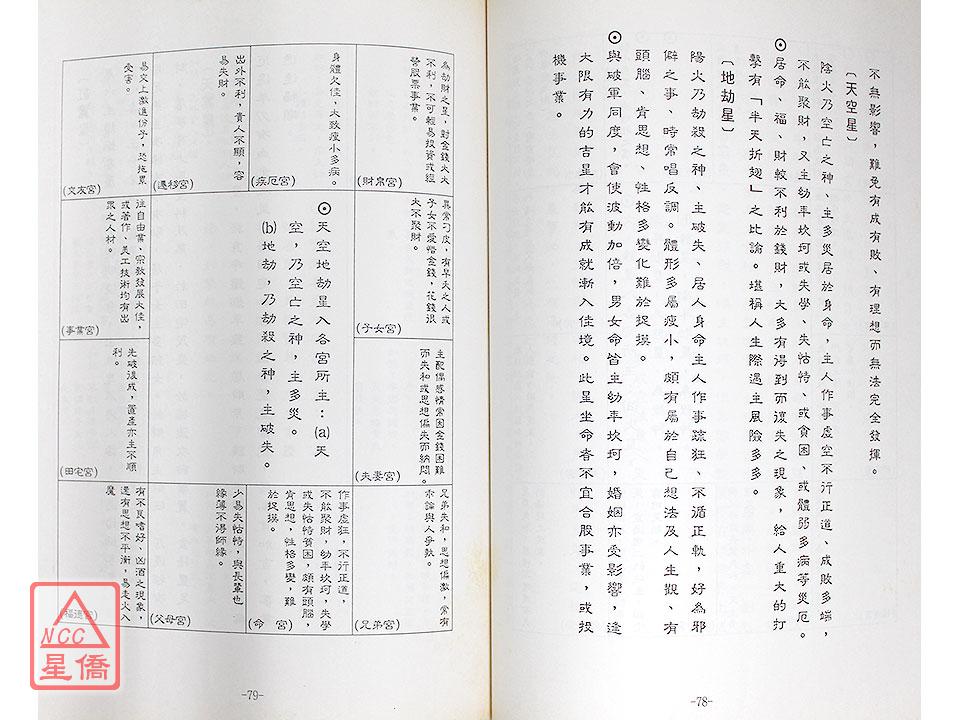 不無影響，難免有成有敗、有理想而無法完全發揮。
〔天空星〕
陰火乃空亡之神、主多災居於身命，主人作事虛空不行正道、成敗多端，
不能聚財，又主幼年坎坷或失學、失怙特、或貧困、或體弱多病等災厄。
⊙居命、福、財較不利於錢財，大多有得到而復失之現象，給人重大的打
擊有「半天折翅」之比諭。堪稱人生際遇主風險多多。
〔地劫星〕
陽火乃劫殺之神、主破失、居人身命主人作事疏狂、不遁正軌，好為邪
僻之事、時常唱反調。體形多屬瘦小，頗有屬於自己想法及人生觀、有
頭腦、肯思想、性格多變化難於捉摸。
⊙與破軍同度，會使波動加倍，男女命皆主幼年坎坷，婚姻亦受影響，逢
大限有力的吉星才能有成就漸入佳境。此星坐命者不宜合股事業，或投
機事業。
-78-
為劫財之星，財金錢大大
不利，不可輕易投資或經
營股票事業。
(財帛宮)
身體欠佳，大致瘦小多病。
(疾厄宮)
出外不利，貴人不顯，容
易失財。
(遷移宮)
易交上激進份子，恐拖累
受害。
(交友宮)
異常刁皮，有早夭之人或
子女不愛惜金錢，花錢很
大不聚財。
(子女宮)
⊙天空地劫星入各宮所主：(a)天
空，乃空亡之神，主多災。
(b)地劫，乃劫殺之神，主破失。
往自由業、宗教發展大佳，
或著作、美工技術均有出
眾之人材。
(事業宮)
主配偶感情常因金錢困難
而失和或思想偏失而納悶。
(夫妻宮)
先破後成，置產亦主不順
利。
(田宅宮)
兄弟失和，思想偏激，常有
乖論與人爭執。
(兄弟宮)
作事虛狂，不行正道，
不能聚財，幼年坎坷，失學
或失怙特貧困，頗有頭腦，
肯思想，性格多變，難
於捉摸。
(命　宮)
少易失怙特，與長輩也
緣薄不得師緣。
(父母宮)
有不良嗜好、凶酒之現象，
還有思想不平衡，易走火入
魔
(福德宮)
-79-
NCC
星僑